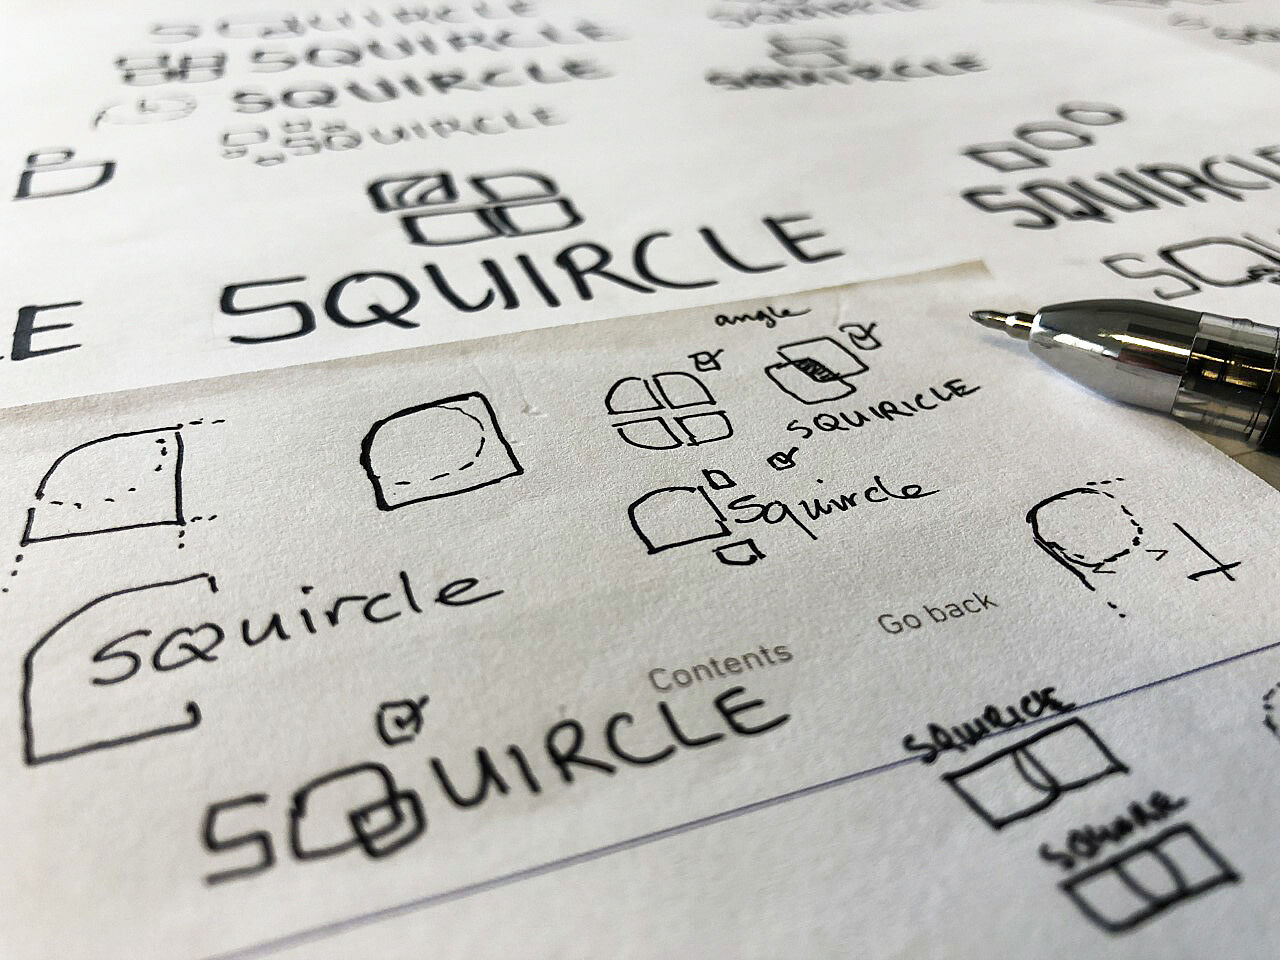 SQUIRCLE
SQUIRCLE
SQUIRCLE
SQUIRCLE
SQUIRCLE
SQUIRCLE
SQUIRCLE
SQUIRCLE
E
angle
SQUIRICLE
Squircle
Squircle
Go back
Contents
SQUIRCLE